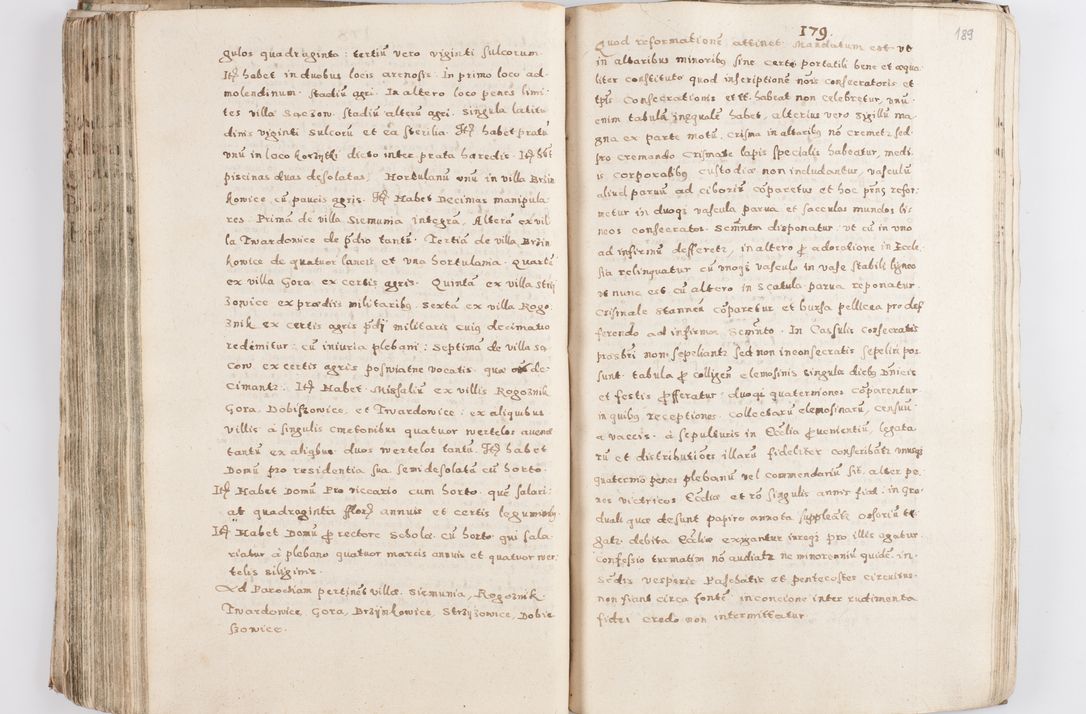 gulos quadraginta : tertiū vero viginti sulcorum
Itȝ habet in duobus locis arenosis. In primo loco ad
molendinum. stadiū agri. In altero loco penes limi
tes villa Saczow. stadiū alterū agri. singula latitu
dinis viginti sulcorū et ea sterilia. Itȝ habet pratū
vnū in loco dicto inter prata haredis. Itȝ hēt
piscinas duas desolatas, Hortulanū vnū in villa Brzin
kowice cū paucis agris. Itȝ Habet Decimas manipula
res. Primā de villa Siemunia integrā, Alterā ex vil
la Twardowice de pdio tantū. Tertiā de villa Brzin
kowice de quatuor laneis et una hortulania. Quartā
ex villa Gora. ex certis agris. Quintā ex villa Strzi
zowice ex prædiis militaribȝ. sextā ex villa Rogo
znik ex certis agris pdij militaris cuiȝ decimatio
redimitur : cū iniuria plebani : septimā de villa sa
cow ex certis agris poswiatne vocatis. quæ de
cimantr. Itȝ Habet Missaliū ex villis Rogoznik
Gora. Dobiszowice. et Twardowice : ex aliquibus
villis à singulis cmetonibus quatuor wertelos avenæ
tantū ex aliqbus. duos wertelos tantū. Itȝ habet
Domū pro residentia sua semidesolatā cū horto.
Itȝ Habet Domū Pro viccario cum horto. quē salari:
at quadraginta florȝ annuis et certis leguminibȝ
Itȝ Habet Domū ꝑ rectore Scholæ. cū horto qui sala
riatur à plebano quatuor marcis annuis et quatuor wer
telis siliginis.
Ad Parochiam pertinēt villæ. Siemunia, Rogoznik.
Twardowice, Gora, Brzynkowice, Strzyzowice, Dobie
szowice.
179.
189
Quod reformationē attinet. Mandatum est. vt
in altaribus minoribȝ sine certo portatili bene et æqua
liter constituto quod inscriptionē nōis consecratoris et
tpīs Consecrationis et tt. habeat non celebretur, vnū
enim tabulā inæqualē habet, alterius vero sigillū ma
gna ex parte motū. Crisma in altaribȝ nō cremetr sed
pro cremando Crismate lapis specialis habeatur, medi
is corporalibȝ custodiæ non includantur, vasculū
aliud paruū ad ciboriū cōparetur et hoc pn̄s refor
metur in duoqȝ vascula parua et sacculos mundos li
neos consecratos. Semn̄tm disponatur. vt cū in vno
ad infirmū defferetr, in altero ꝑ adoratione in Eccle
sia relinquatur cū vnoqȝ vasculo in vase stabili ligneo
vt nunc est. cū altero in scatula parua reponatur.
Crismale stanneū cōparetur et bursa pellicea pro def
ferendo ad infirmos Semn̄to. In Cassulis consecratis
prasbri non sepeliantr sed non inconsecratis sepeliri pos
sunt. tabula ꝑ colligen̄ elemosinis singulis diebȝ Dn̄icis
et festis ꝓfferatur. duoqȝ quaterniones cōparentur
in quibȝ receptiones. Collectarū elemosinarū, censuū
a vaccis. à sepulturis in Ecclīa prouenientiū, legato
rū et distributiōes illarū fideliter conscribātr
quaternio penes plebanū vel commendariū sit. alter pe
nes vietricos Ecclīæ et rō singulis annis fiat. in Gra
duali quæ desunt papiro annota suppleātr
gatr. debita Ecclīæ exigantur pro illis agatur.
Confessio turmatim nō audiatr ne minorenniū quidē. in
Sēdis vesperis Paschatis et Pentecostes circuitus.
non fiant circa fontē in concione inter rudimenta
fidei Credo non intermittatur